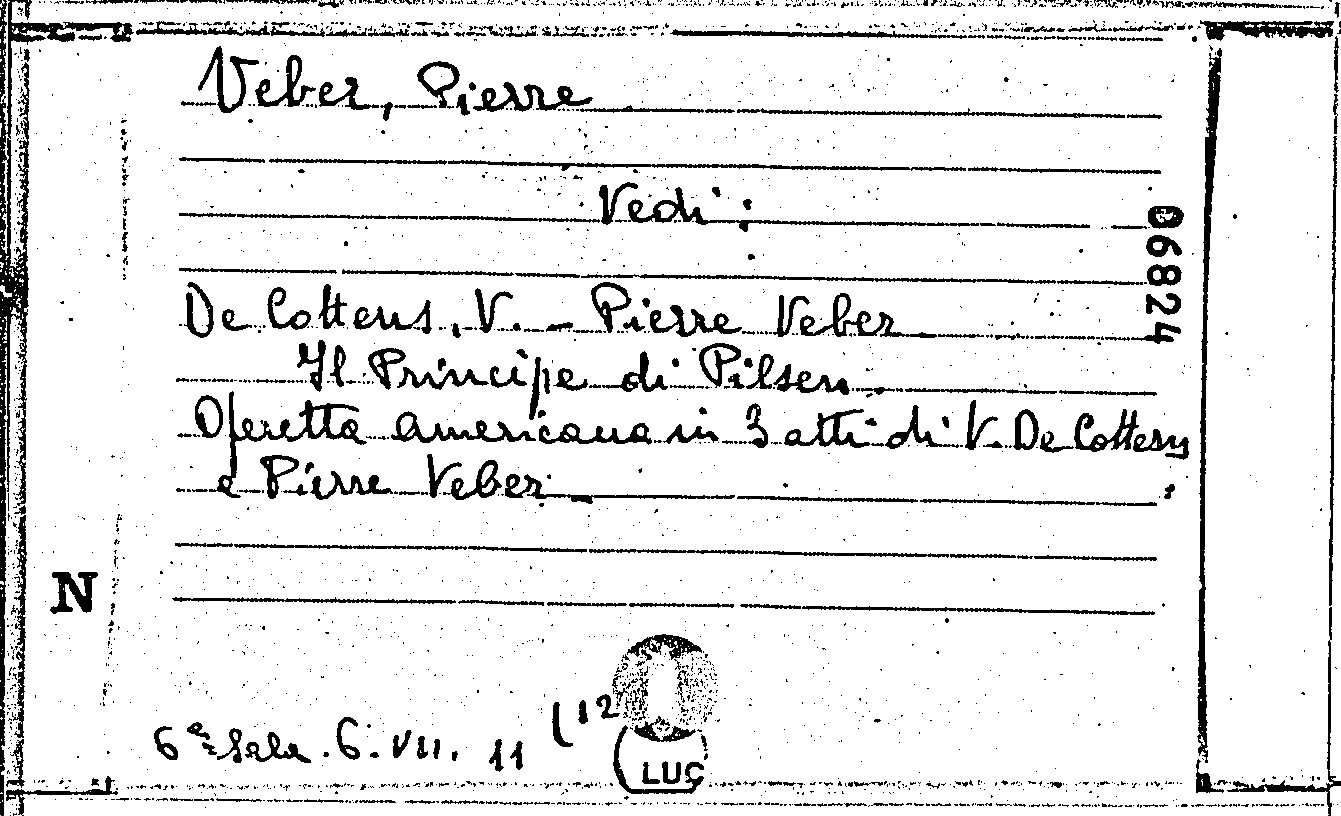 Veber, Pierre
Vedi:
De Cottens, V. - Pierre Veber
Il Principe di Pilsen.
Operetta americana in 3 atti di V. De Cottens
e Pierre Veber -
06824
N
6ª Sala. 6. VII. 11 (12
LUC